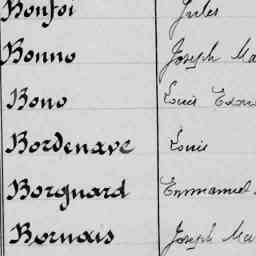 Bonfoi Jules
Bonno Joseph Ma
Bono Louis
Bordenave Louis
Borgnard Emmanuel
Bornais Joseph Ma